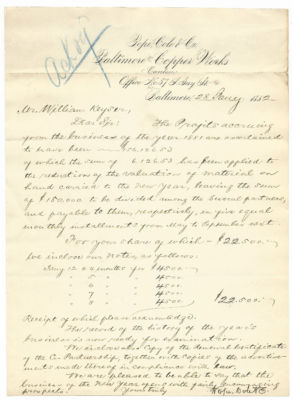 Pope, Cole & Co.
Baltimore Copper Works
Canton
Office No 57 S. Gay St.
Baltimore, 28 Jany 1882
Mr. William Keyser,
Dear Sir: The Profits accruing
from the business of the year 1881 are ascertained
to have been
of which the sum of 6,126.53 has been applied to
the reduction of the valuation of material on
hand carried to the New Year, leaving the sum
of $150000 to be divided among the several partners,
and payable to them, respectively, in five equal
monthly installments from May to September next.
For your share of which - $22,500.-
We inclose our Notes as follows:
4500.
" 5 " 4500.
" 6 " 4500.
" 7 " 4500
" 8 " 4500. $22,500.-
Receipt of which please acknowledge.
The record of the history of the year's
business is now ready for examination.
We inclose also Copy of the Annual Certificate
of the Co-Partnership, together with copies of the advertise-
ments made thereof in compliance with law.
We are pleased to be able to say that the
business of the New Year opens with fairly encouraging
prospects. Yours truly